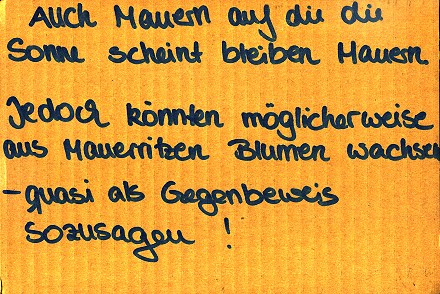 Auch Mauern auf die die
Sonne scheint bleiben Mauern.
Jedoch könnten möglicherweise
aus Mauerritzen Blumen wachsen
- quasi als Gegenbeweis
sozusagen !